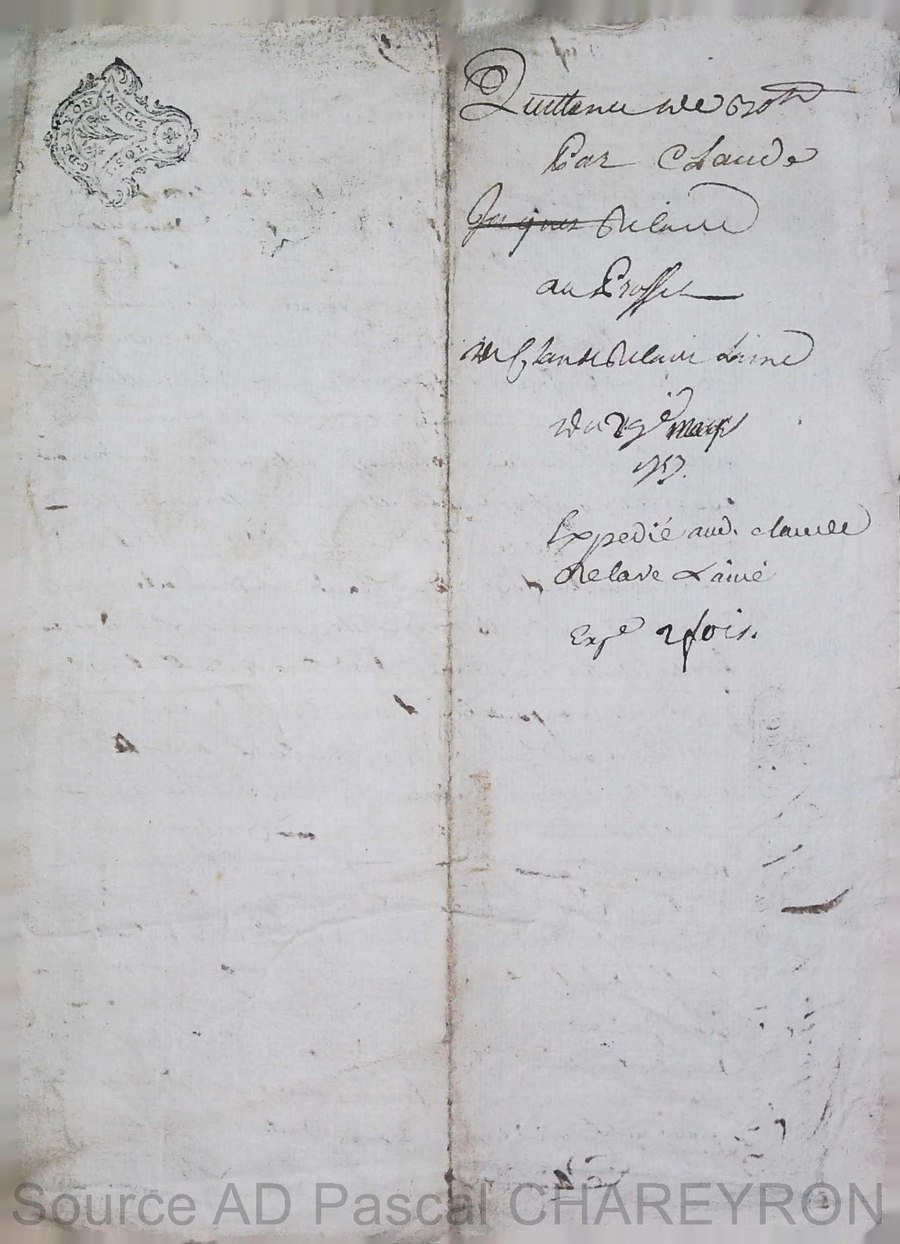 Quittance de 630ᴸᵗ
Par Claude
Jaques Delave
au Proffit
de Claude Delave Laîné
du 29ᵉ mars
1757.
Expedié aud. claude
Delave Lainé
Expᵉ 2 fois.
GDE LYON
DEN
Source AD Pascal CHAREYRON